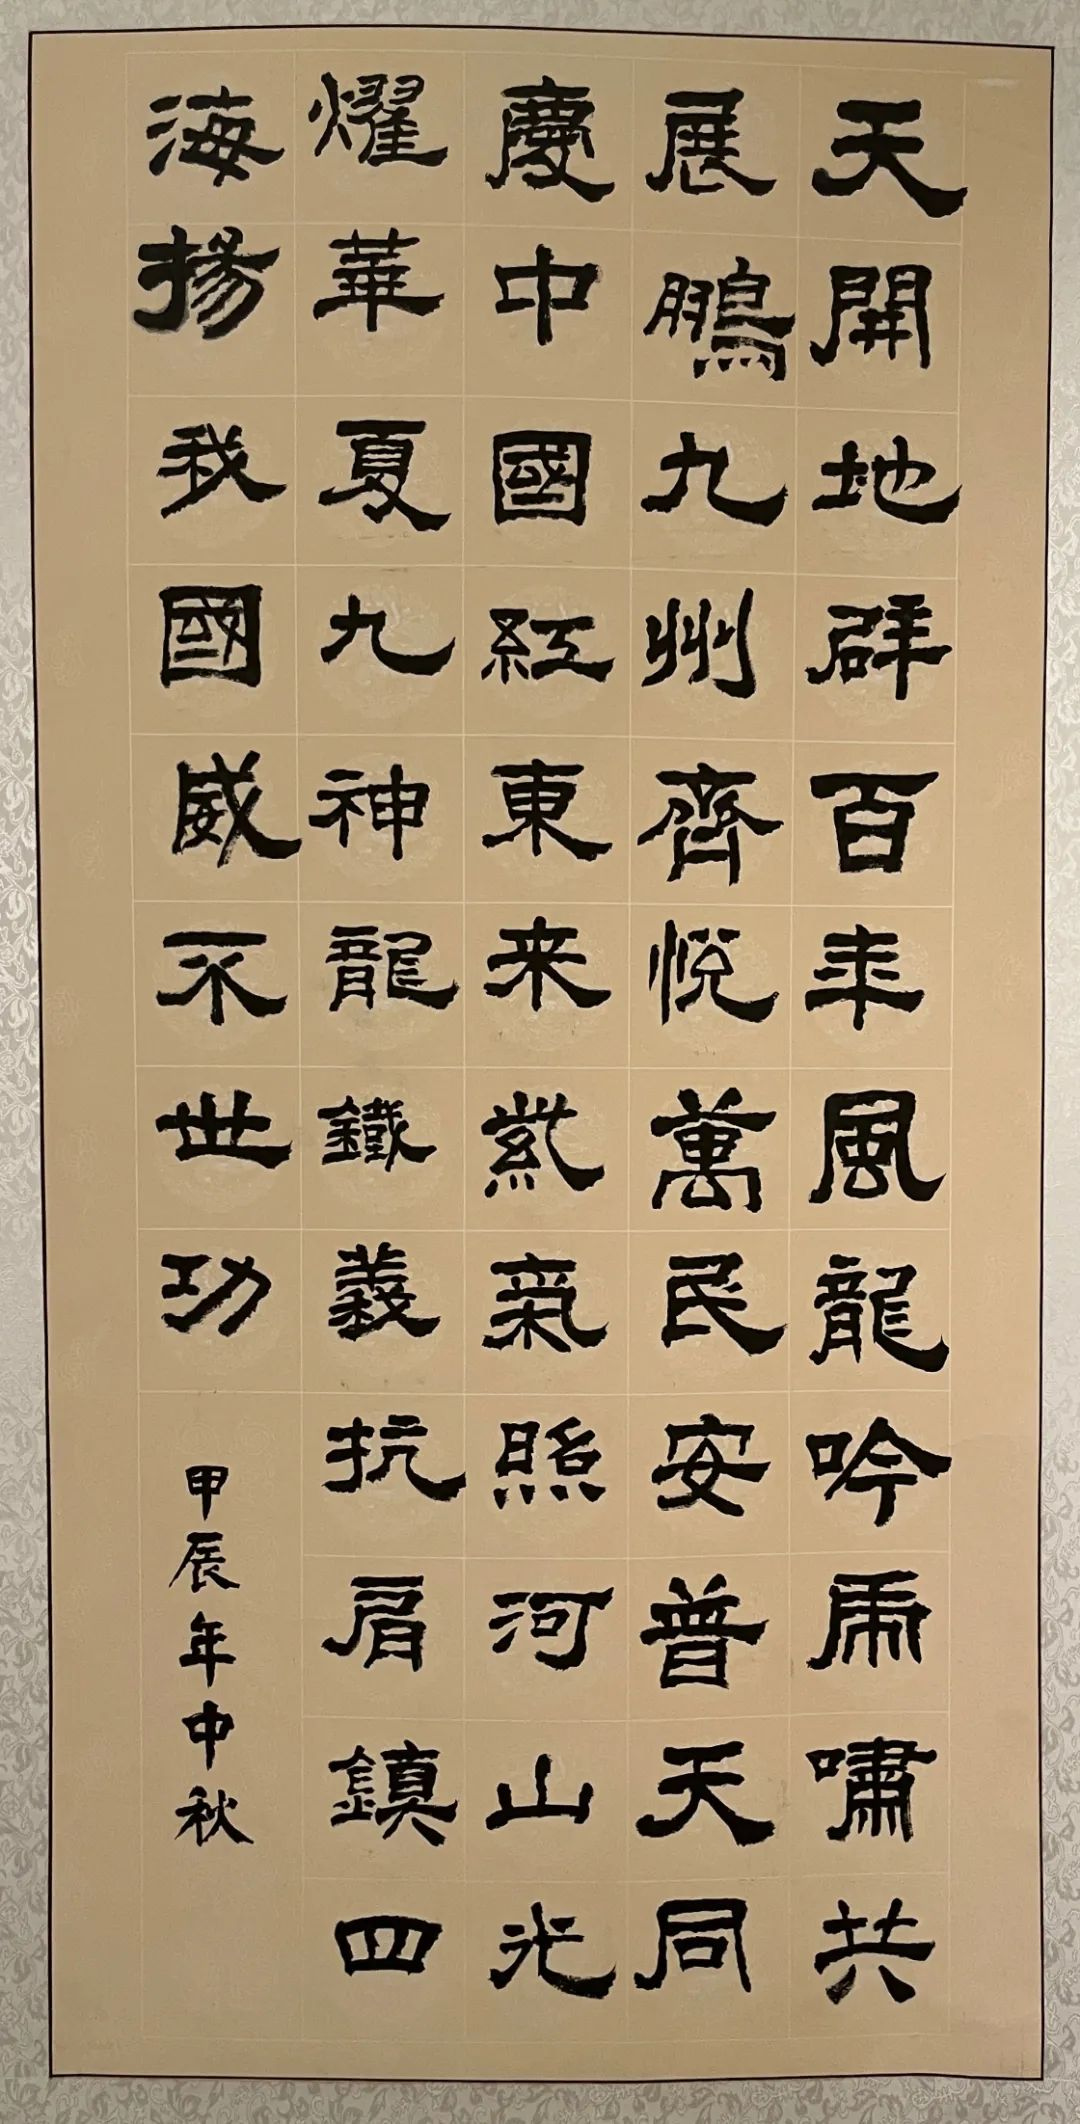 天開地辟百年風龍吟虎嘯共
展鵬九州齊悅萬民安普天同
慶中國紅東来紫氣照河山光
耀華夏九神龍鐵義抗肩鎮四
海揚我國威不世功
甲辰年中秋